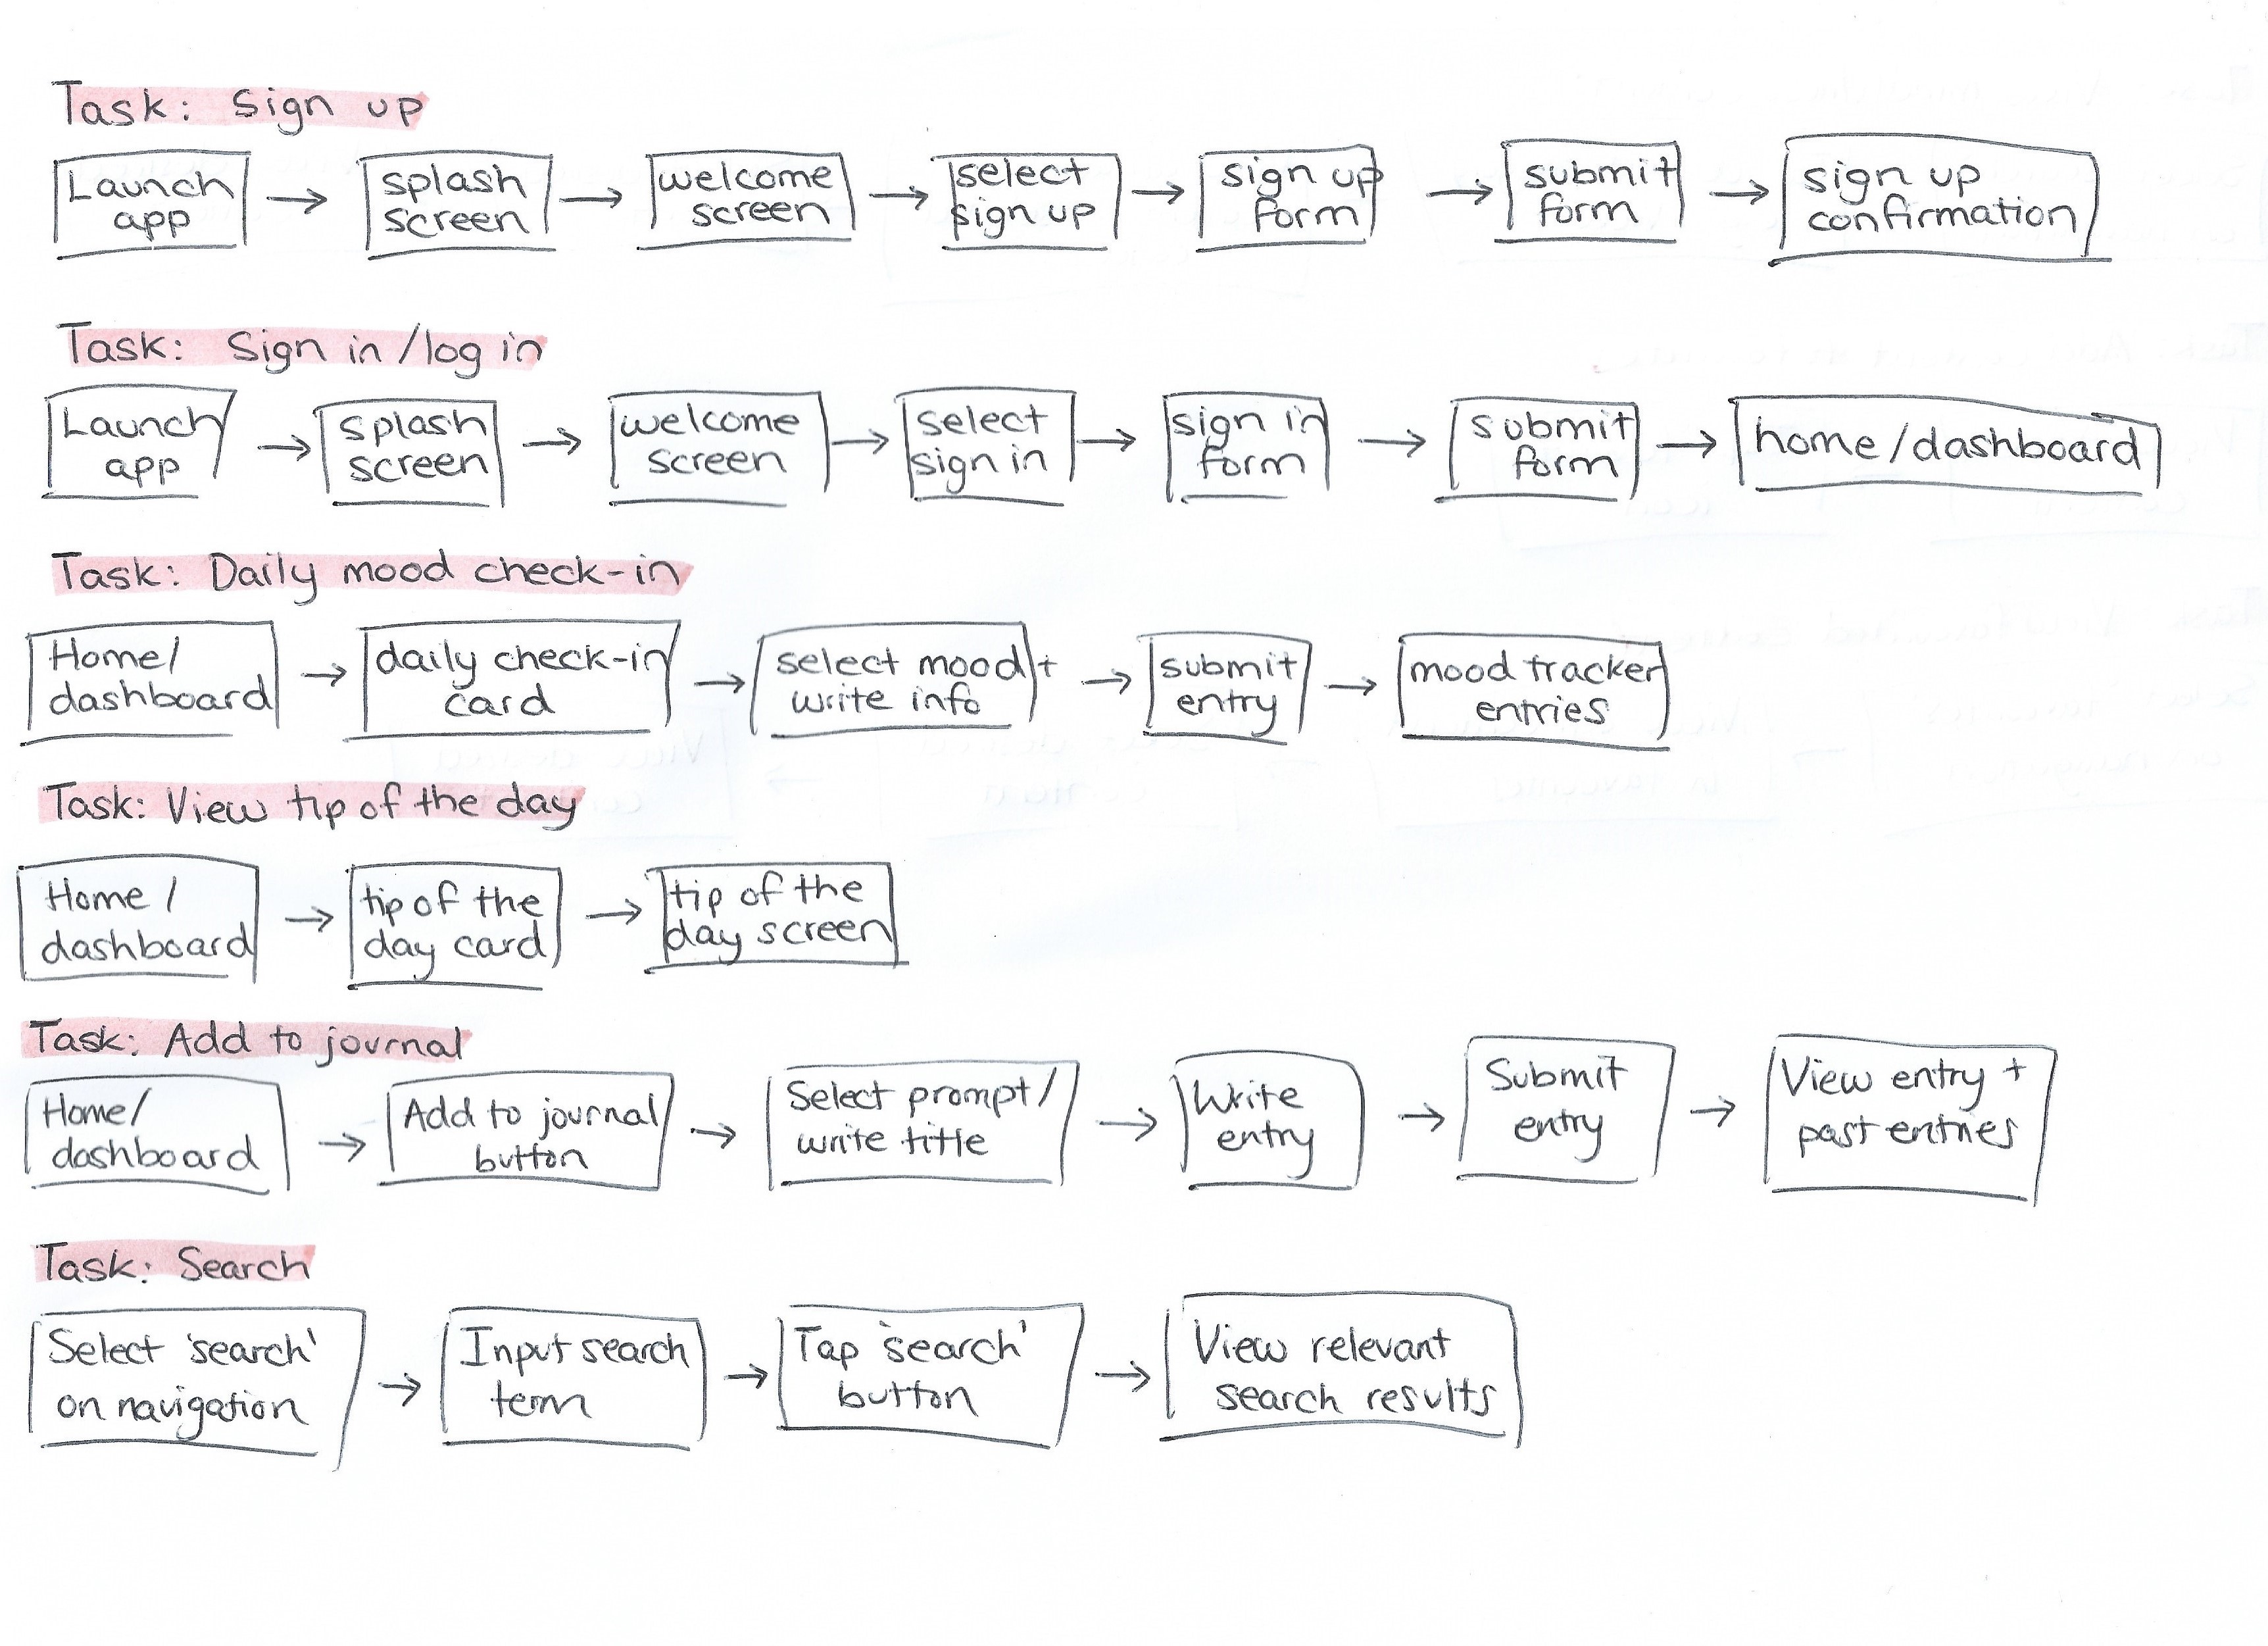 Task: Sign up
Launch
app
splash
screen
welcome
screen
select
sign up
sign up
form
submit
form
sign up
confirmation
Task: Sign in/log in
Launch
app
splash
screen
welcome
screen
select
sign in
sign in
form
submit
form
home/dashboard
Task: Daily mood check-in
Home/
dashboard
daily check-in
card
select mood +
write info
submit
entry
mood tracker
entries
Task: View tip of the day
Home/
dashboard
tip of the
day card
tip of the
day screen
Task: Add to journal
Home/
dashboard
Add to journal
button
Select prompt/
write title
Write
entry
Submit
entry
View entry +
past entries
Task: Search
Select 'search'
on navigation
Input search
term
Tap 'search'
button
View relevant
search results